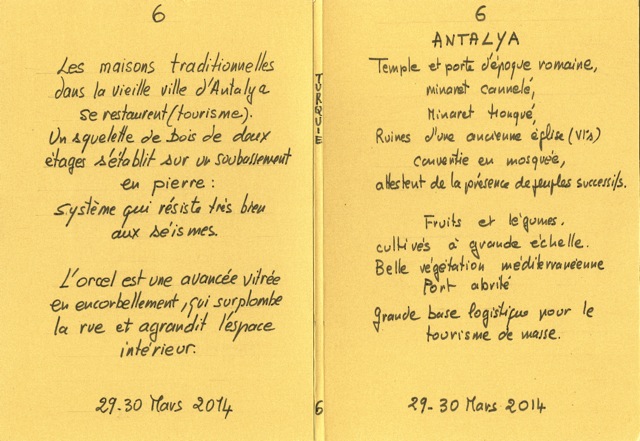 6
Les maisons traditionnelles
dans la vieille ville d'Antalya
se restaurent (tourisme).
Un squelette de bois de deux
étages s'établit sur un soubassement
en pierre :
système qui résiste très bien
aux séismes.
L'orcel est une avancée vitrée
en encorbellement, qui surplombe
la rue et agrandit l'espace
intérieur.
29-30 Mars 2014
TURQUIE
6
6
ANTALYA
Temple et porte d'époque romaine,
minaret cannelé,
Minaret tronqué,
Ruines d'une ancienne église (VIes)
convertie en mosquée,
attestent de la présence de peuples successifs.
Fruits et légumes.
cultivés à grande échelle.
Belle végétation méditerranéenne
Port abrité
Grande base logistique pour le
tourisme de masse.
29-30 Mars 2014